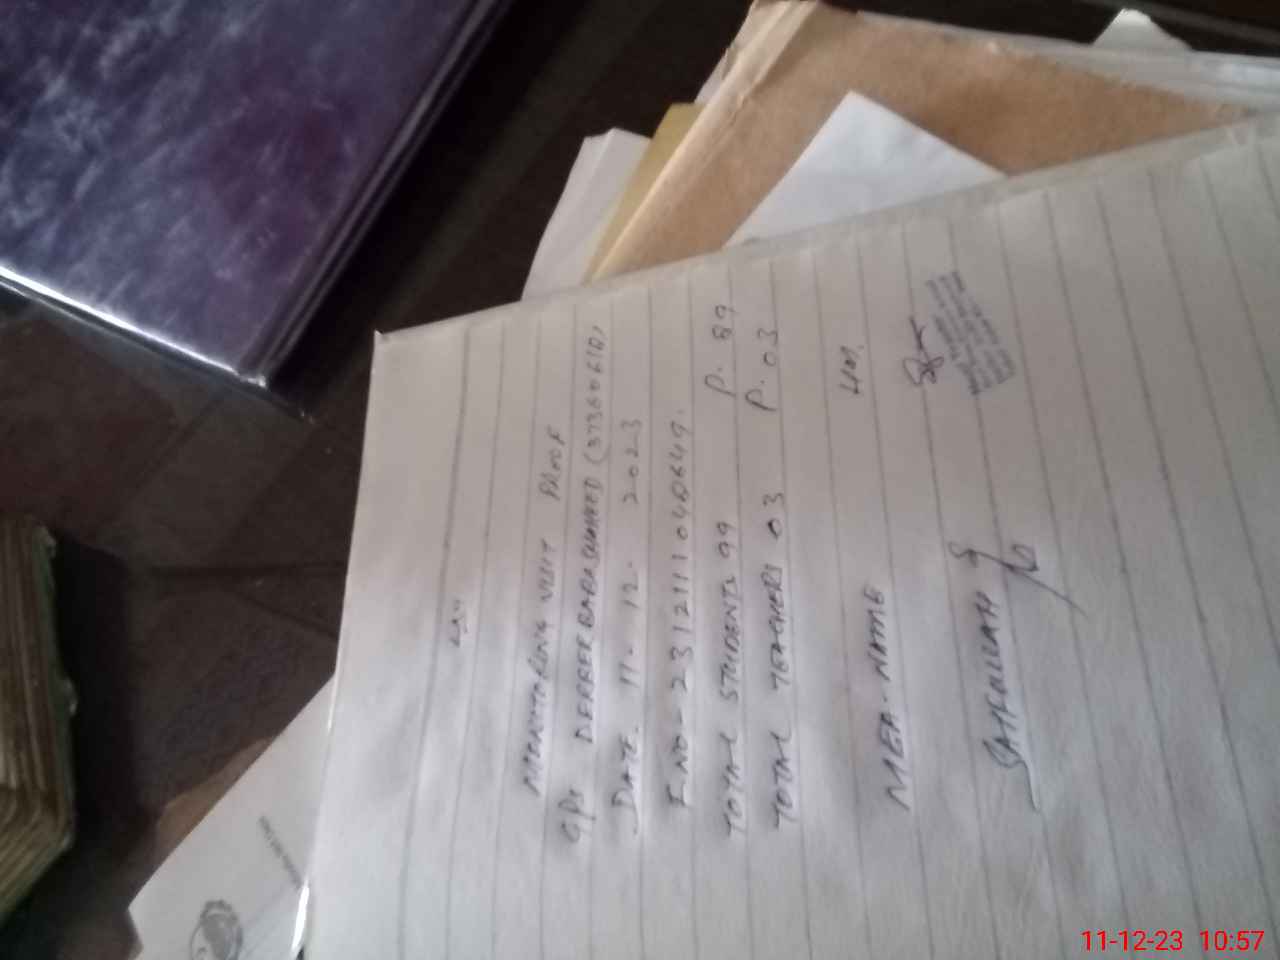 MONITORING VISIT PROOF
GPS DEFFER BABA WAHEED (37360610)
DATE. 11. 12. 2023
F. NO - 2312111040649.
TOTAL STUDENTS 99 P. 89
TOTAL TEACHERS 03 P. 03
MEA. NAME HM.
SAIFULLAH
11-12-23 10:57